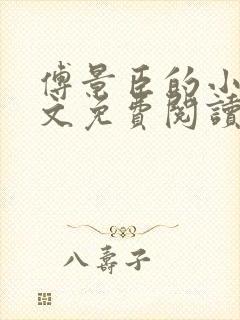 傅景臣的小
文免費閱讀
八壽子